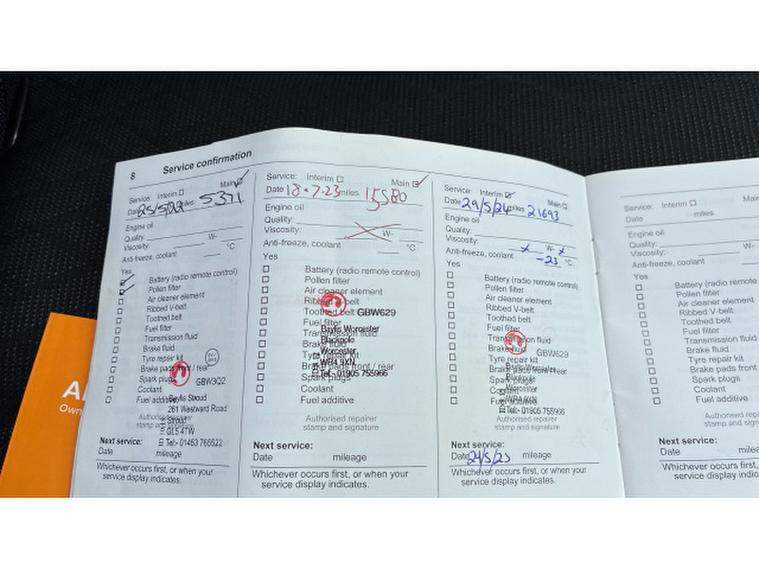 8 Service confirmation
Service: Interim ☐ Main ☑
Date 25/5/22 miles 5371
Engine oil
Quality: W-
Viscosity:
Anti-freeze, coolant °C
Yes
☑ Battery (radio remote control)
☑ Pollen filter
☐ Air cleaner element
☐ Ribbed V-belt
☐ Toothed belt
☐ Fuel filter
☐ Transmission fluid
☐ Brake fluid
☐ Tyre repair kit
☐ Brake pads front / rear
☐ Spark plugs
☐ Coolant
☐ Fuel additive
GBW3Q2
Baylis Stroud
261 Westward Road
Stroud
GL5 4TW
Tel:- 01453 765522
Authorised repairer
stamp and signature
Next service:
Date mileage
Whichever occurs first, or when your
service display indicates.
Service: Interim ☐ Main ☑
Date 18.7.23 miles 15580
Engine oil
Quality:
Viscosity: W-
Anti-freeze, coolant °C
Yes
☐ Battery (radio remote control)
☐ Pollen filter
☐ Air cleaner element
☐ Ribbed V-belt
☐ Toothed belt
☐ Fuel filter
☐ Transmission fluid
☐ Brake fluid
☐ Tyre repair kit
☐ Brake pads front / rear
☐ Spark plugs
☐ Coolant
☐ Fuel additive
GBW629
Baylis Worcester
Blackpole
Worcester
WR4 9XN
Tel:- 01905 755966
Authorised repairer
stamp and signature
Next service:
Date mileage
Whichever occurs first, or when your
service display indicates.
Service: Interim ☑ Main ☐
Date 29/5/24 miles 21693
Engine oil
Quality:
Viscosity: x W- x
Anti-freeze, coolant -25 °C
Yes
☐ Battery (radio remote control)
☐ Pollen filter
☐ Air cleaner element
☐ Ribbed V-belt
☐ Toothed belt
☐ Fuel filter
☐ Transmission fluid
☐ Brake fluid
☐ Tyre repair kit
☐ Brake pads front / rear
☐ Spark plugs
☐ Coolant
☐ Fuel additive
GBW629
Baylis Worcester
Blackpole
Worcester
WR4 9XN
Tel:- 01905 755966
Authorised repairer
stamp and signature
Next service:
Date 29/5/25 mileage
Whichever occurs first, or when your
service display indicates.
Service: Interim ☐ Mai
Date miles
Engine oil
Quality:
Viscosity: W-
Anti-freeze, coolant
Yes
☐ Battery (radio remote con
☐ Pollen filter
☐ Air cleaner element
☐ Ribbed V-belt
☐ Toothed belt
☐ Fuel filter
☐ Transmission fluid
☐ Brake fluid
☐ Tyre repair kit
☐ Brake pads front / rear
☐ Spark plugs
☐ Coolant
☐ Fuel additive
Authorised repaire
stamp and signatur
Next service:
Date mileage
Whichever occurs first, or w
service display indicates.
A
Own